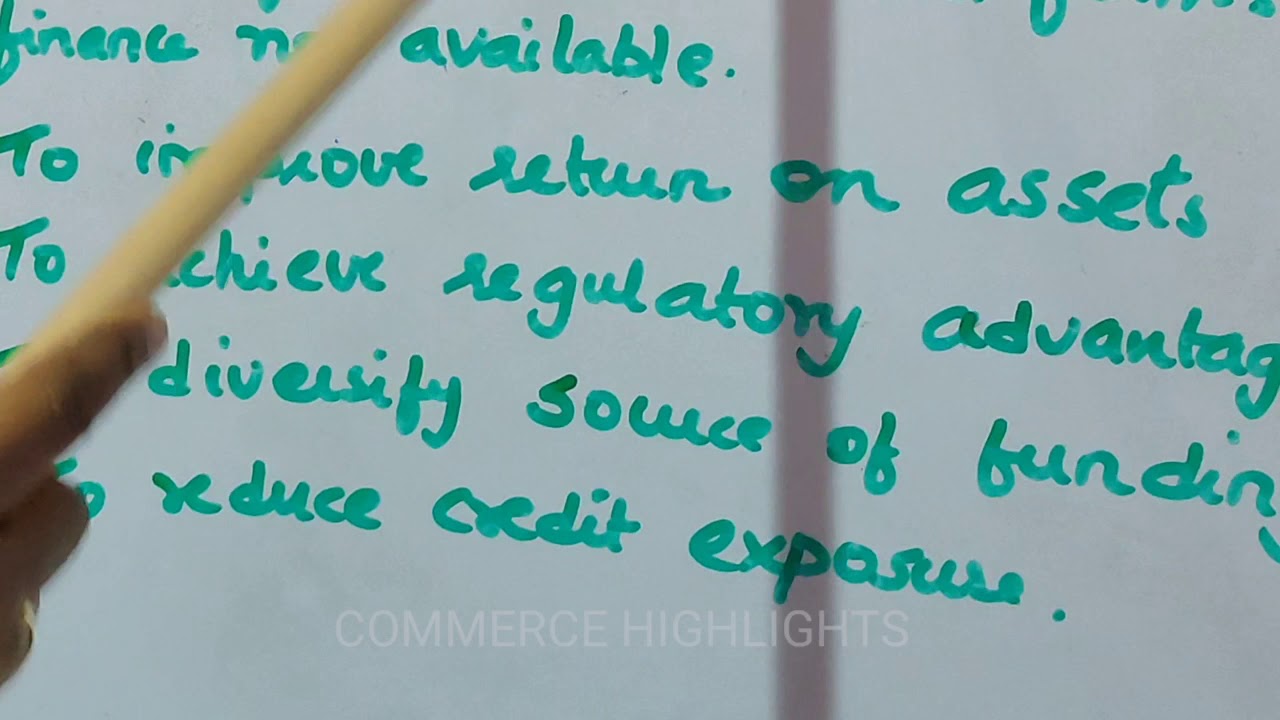 finance available.
To improve return on assets
To achieve regulatory advantag
diversify source of funding
To reduce credit exposure.
COMMERCE HIGHLIGHTS